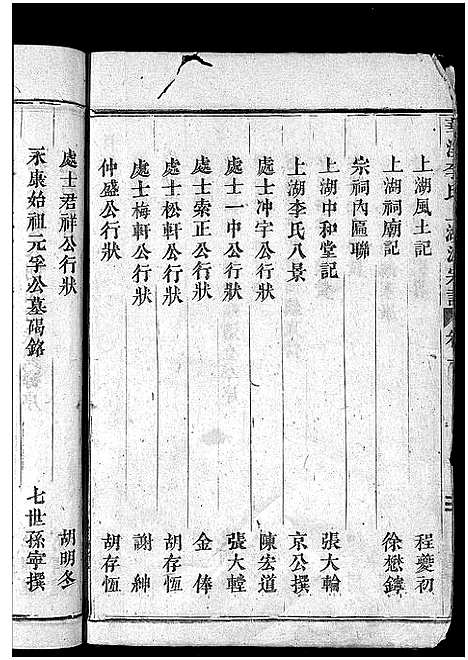 上湖風土記 程夔初
上湖祠廟記 徐懋鑄
宗祠內區聯
上湖中和堂記 張大輪
上湖李氏八景 京公撰
處士冲宇公行狀 陳宏道
處士一中公行狀 張大鏜
處士索正公行狀 金俸
處士松軒公行狀 胡存恆
處士梅軒公行狀 謝紳
仲盛公行狀 胡存恆
處士君祥公行狀 胡明冬
永康始祖元孚公墓碣銘 七世孫寧撰